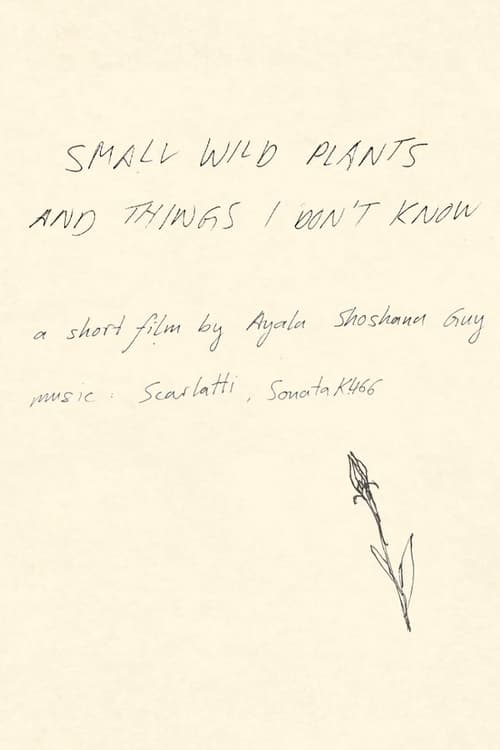 SMALL WILD PLANTS
AND THINGS I DON'T KNOW
a short film by Ayala Shoshana Guy
music: Scarlatti, Sonata K466